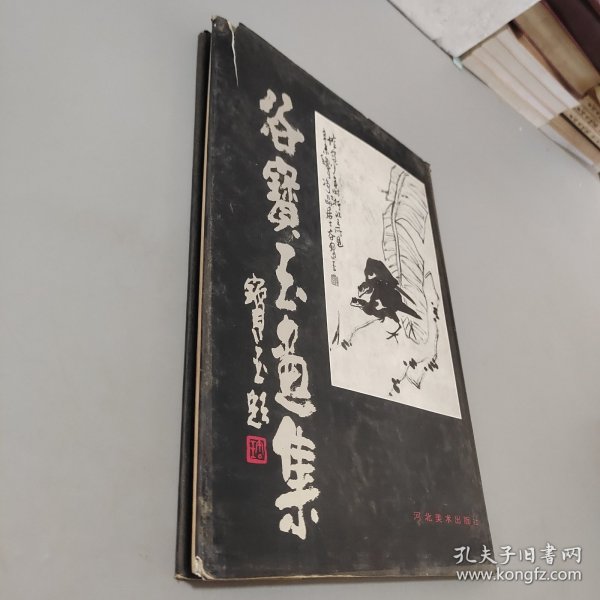 谷寶玉畫集
寶玉題
河北美术出版社
孔夫子旧书网
www.kongfz.com